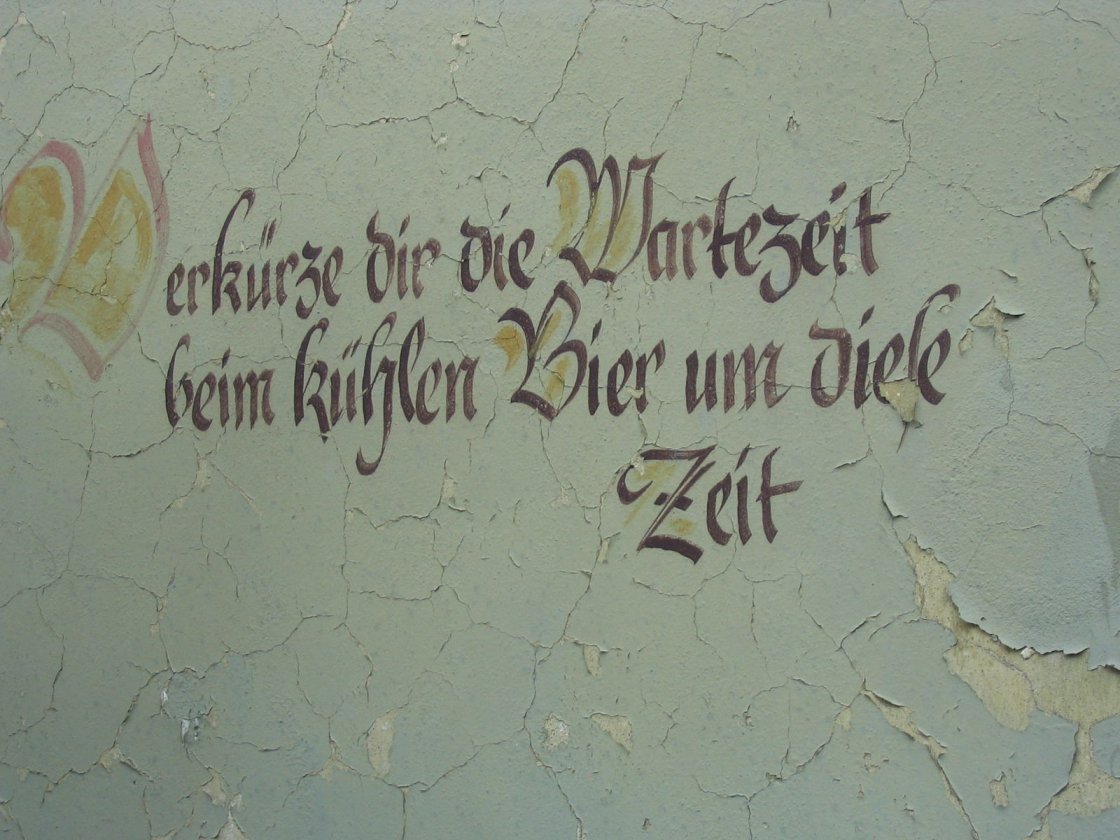 Verkürze dir die Wartezeit
beim kühlen Bier um diese
Zeit